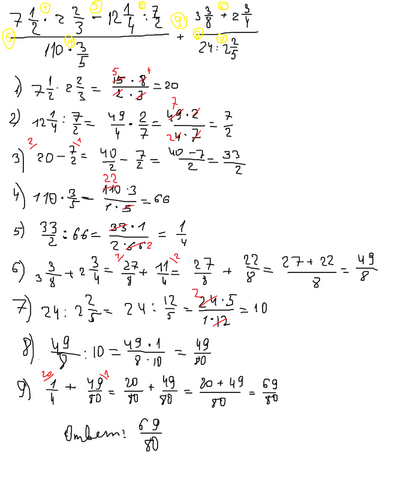 (7 1/2 · 2 2/3 − 12 1/4 : 7/2) / (110 · 3/5) + (3 3/8 + 2 3/4) / (24 : 2 2/5)
1) 7 1/2 · 2 2/3 = 15 · 8 / 2 · 3 = 20
2) 12 1/4 : 7/2 = 49/4 · 2/7 = 49 · 2 / 4 · 7 = 7/2
3) 20 − 7/2 = 40/2 − 7/2 = 40 − 7 / 2 = 33/2
4) 110 · 3/5 − 110 · 3 / 1 · 5 = 66
5) 33/2 : 66 = 33 · 1 / 2 · 66 = 1/4
6) 3 3/8 + 2 3/4 = 27/8 + 11/4 = 27/8 + 22/8 = 27 + 22 / 8 = 49/8
7) 24 : 2 2/5 = 24 : 12/5 = 24 · 5 / 1 · 12 = 10
8) 49/8 : 10 = 49 · 1 / 8 · 10 = 49/80
9) 1/4 + 49/80 = 20/80 + 49/80 = 20 + 49 / 80 = 69/80
Ответ: 69/80